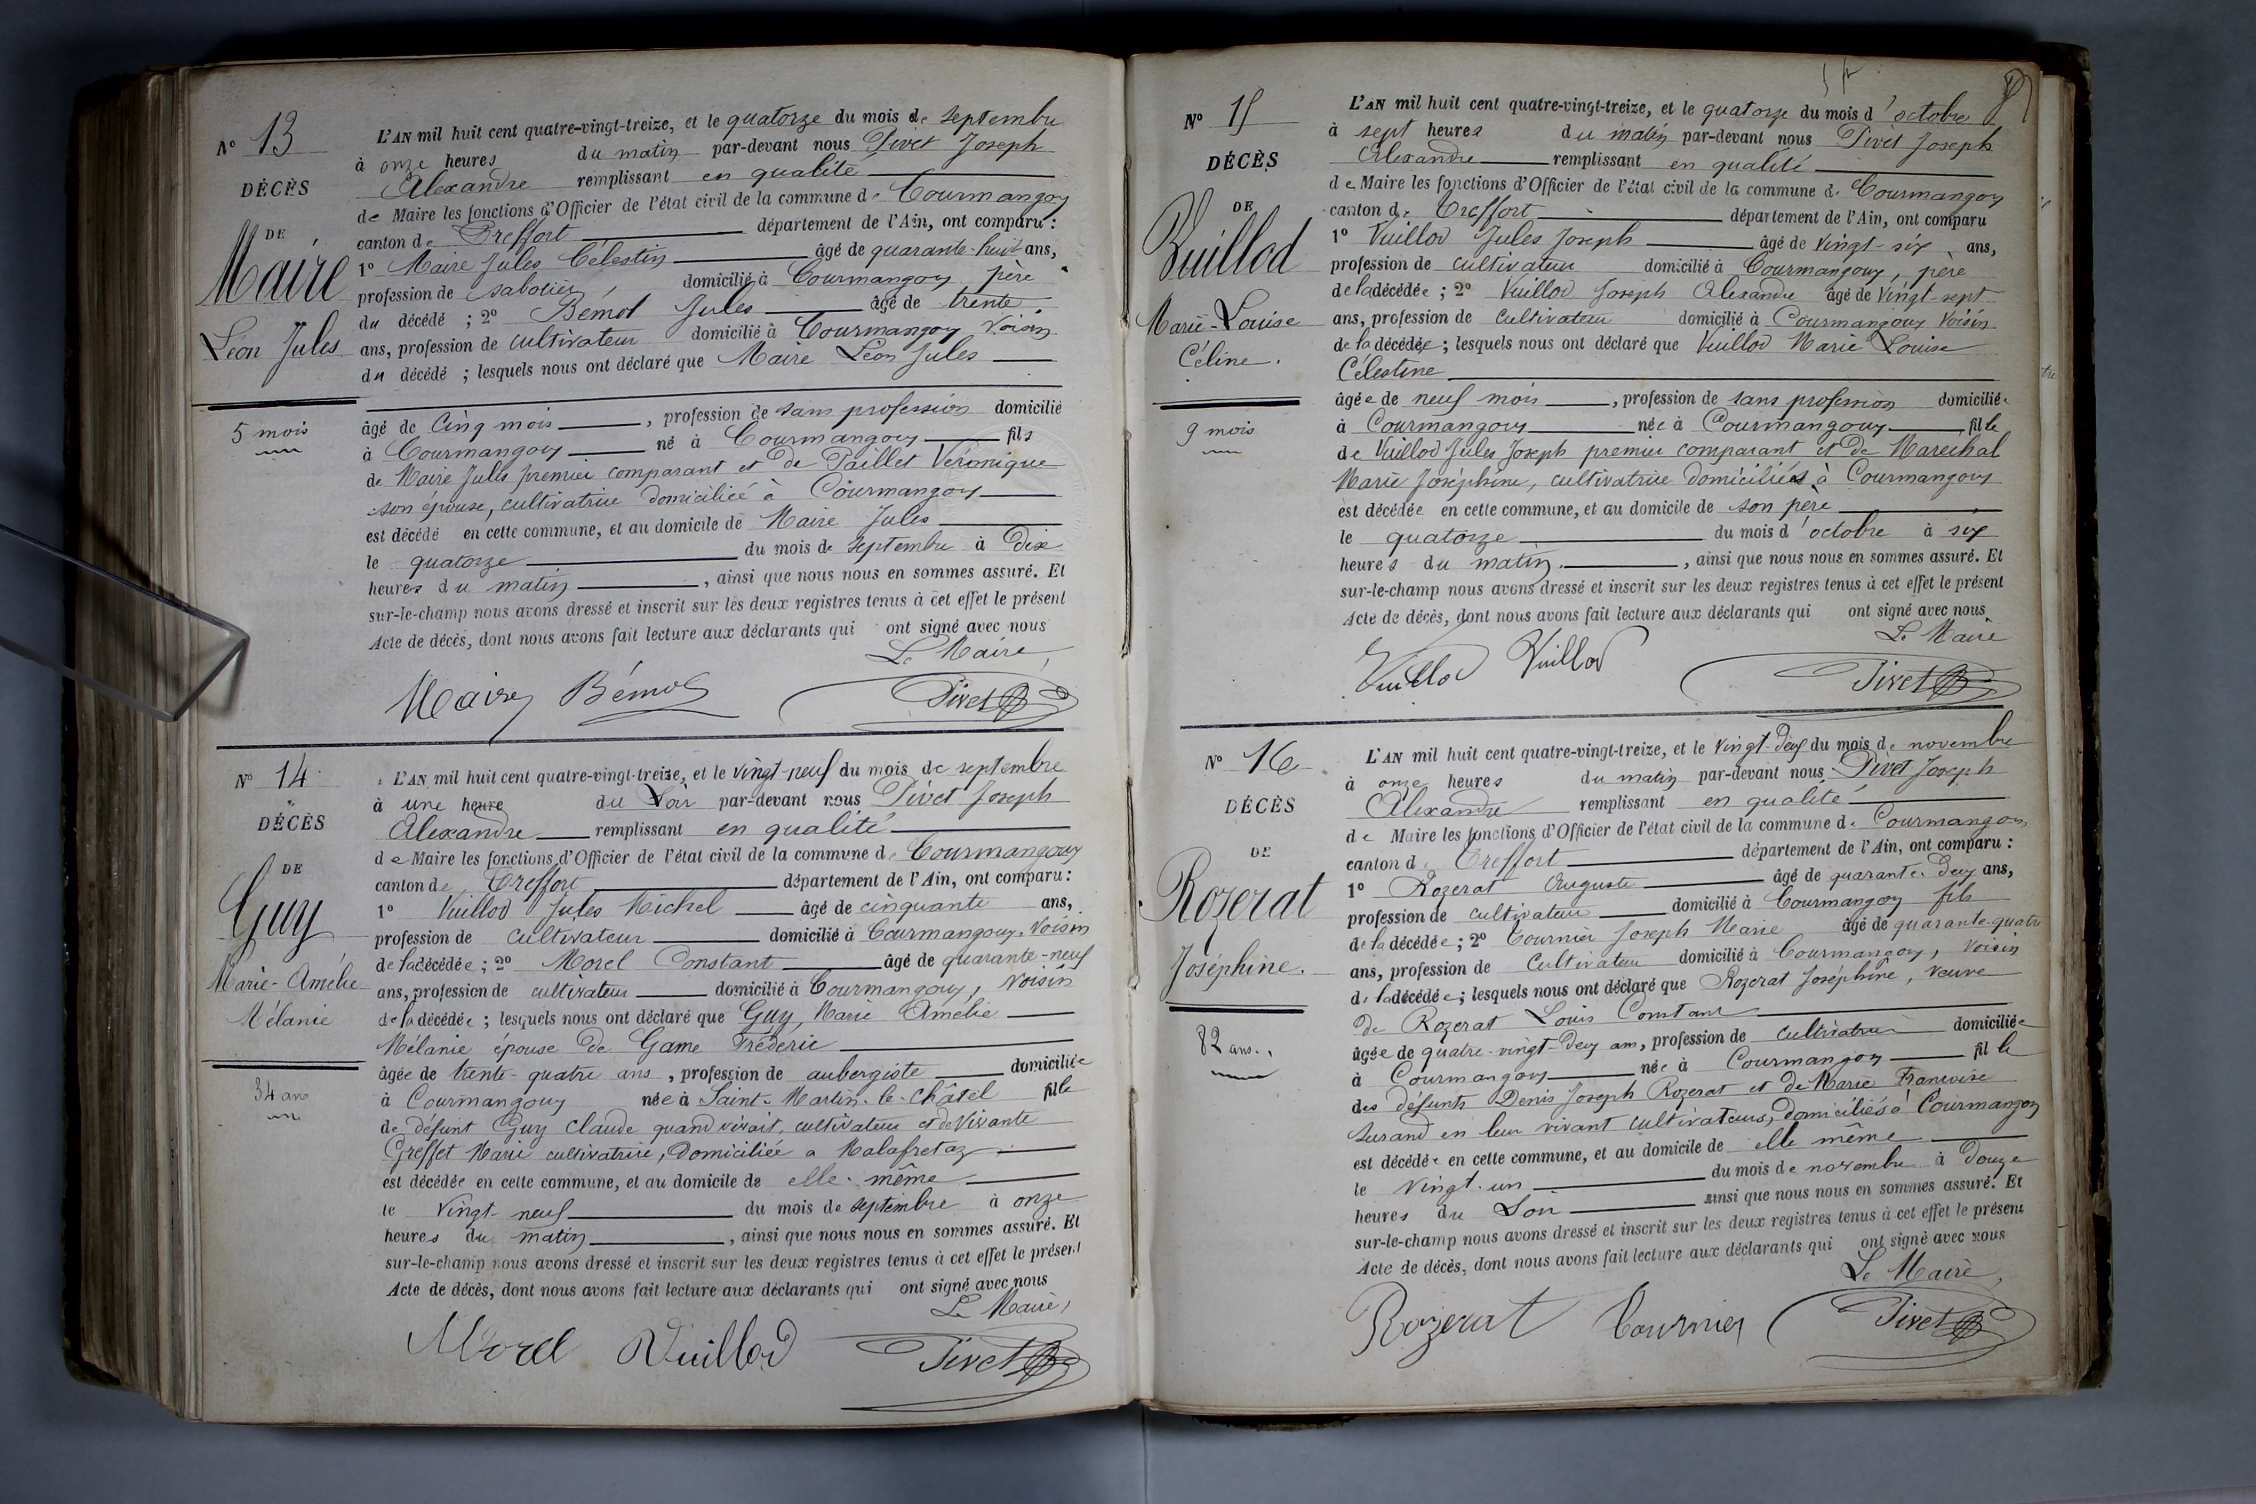 N° 13
DÉCÈS
DE
Maire
Léon Jules
5 mois
L'AN mil huit cent quatre-vingt-treize, et le quatorze du mois de septembre
à onze heures du matin par-devant nous Pivet Joseph
Alexandre remplissant en qualité
de Maire les fonctions d'Officier de l'état civil de la commune de Courmangoux
canton de Treffort département de l'Ain, ont comparu :
1° Maire Jules Célestin âgé de quarante-huit ans,
profession de sabotier, domicilié à Courmangoux, père
du décédé ; 2° Bémol Jules âgé de trente
ans, profession de cultivateur domicilié à Courmangoux voisin
du décédé ; lesquels nous ont déclaré que Maire Léon Jules
âgé de cinq mois, profession de sans profession domicilié
à Courmangoux né à Courmangoux fils
de Maire Jules premier comparant et de Paillet Véronique
son épouse, cultivatrice domiciliée à Courmangoux
est décédé en cette commune, et au domicile de Maire Jules
le quatorze du mois de septembre à dix
heures du matin, ainsi que nous nous en sommes assuré. Et
sur-le-champ nous avons dressé et inscrit sur les deux registres tenus à cet effet le présent
Acte de décès, dont nous avons fait lecture aux déclarants qui ont signé avec nous
Le Maire,
Maire Bémol Pivet
N° 14
DÉCÈS
DE
Guy
Marie-Amélie
Mélanie
34 ans
L'AN mil huit cent quatre-vingt-treize, et le vingt-neuf du mois de septembre
à une heure du soir par-devant nous Pivet Joseph
Alexandre remplissant en qualité
de Maire les fonctions d'Officier de l'état civil de la commune de Courmangoux
canton de Treffort département de l'Ain, ont comparu :
1° Vuillod Jules Michel âgé de cinquante ans,
profession de cultivateur domicilié à Courmangoux, voisin
de la décédée ; 2° Morel Constant âgé de quarante-neuf
ans, profession de cultivateur domicilié à Courmangoux, voisin
de la décédée ; lesquels nous ont déclaré que Guy, Marie Amélie
Mélanie épouse de Game Frédéric
âgée de trente-quatre ans, profession de aubergiste domiciliée
à Courmangoux née à Saint-Martin-le-Châtel fille
de défunt Guy Claude quand vivait, cultivateur et de vivante
Greffet Marie cultivatrice, domiciliée a Malafretaz
est décédée en cette commune, et au domicile de elle-même
le vingt-neuf du mois de septembre à onze
heures du matin, ainsi que nous nous en sommes assuré. Et
sur-le-champ nous avons dressé et inscrit sur les deux registres tenus à cet effet le présent
Acte de décès, dont nous avons fait lecture aux déclarants qui ont signé avec nous
Le Maire,
Morel Vuillod Pivet
N° 15
DÉCÈS
DE
Vuillod
Marie-Louise
Céline.
9 mois
L'AN mil huit cent quatre-vingt-treize, et le quatorze du mois d'octobre
à sept heures du matin par-devant nous Pivet Joseph
Alexandre remplissant en qualité
de Maire les fonctions d'Officier de l'état civil de la commune de Courmangoux
canton de Treffort département de l'Ain, ont comparu
1° Vuillod Jules Joseph âgé de vingt-six ans,
profession de cultivateur domicilié à Courmangoux, père
de la décédée ; 2° Vuillod Joseph Alexandre âgé de vingt-sept
ans, profession de cultivateur domicilié à Courmangoux voisin
de la décédée ; lesquels nous ont déclaré que Vuillod Marie Louise
Célestine
âgée de neuf mois, profession de sans profession domiciliée
à Courmangoux née à Courmangoux fille
de Vuillod Jules Joseph premier comparant et de Marechal
Marie Joséphine, cultivatrice domiciliés à Courmangoux
est décédée en cette commune, et au domicile de son père
le quatorze du mois d'octobre à six
heures du matin, ainsi que nous nous en sommes assuré. Et
sur-le-champ nous avons dressé et inscrit sur les deux registres tenus à cet effet le présent
Acte de décès, dont nous avons fait lecture aux déclarants qui ont signé avec nous
Le Maire
Vuillod Vuillod Pivet
N° 16
DÉCÈS
DE
Rozerat
Joséphine.
82 ans.
L'AN mil huit cent quatre-vingt-treize, et le vingt-deux du mois de novembre
à onze heures du matin par-devant nous Pivet Joseph
Alexandre remplissant en qualité
de Maire les fonctions d'Officier de l'état civil de la commune de Courmangoux
canton de Treffort département de l'Ain, ont comparu :
1° Rozerat Auguste âgé de quarante-deux ans,
profession de cultivateur domicilié à Courmangoux fils
de la décédée ; 2° Tournier Joseph Marie âgé de quarante-quatre
ans, profession de cultivateur domicilié à Courmangoux, voisin
de la décédée ; lesquels nous ont déclaré que Rozerat Joséphine, veuve
de Rozerat Louis Constant
âgée de quatre-vingt-deux ans, profession de cultivatrice domiciliée
à Courmangoux née à Courmangoux fille
des défunts Denis Joseph Rozerat et de Marie Françoise
Surand en leur vivant cultivateurs, domiciliés à Courmangoux
est décédée en cette commune, et au domicile de elle même
le vingt-un du mois de novembre à douze
heures du soir ainsi que nous nous en sommes assuré. Et
sur-le-champ nous avons dressé et inscrit sur les deux registres tenus à cet effet le présent
Acte de décès, dont nous avons fait lecture aux déclarants qui ont signé avec nous
Le Maire,
Rozerat Tournier Pivet